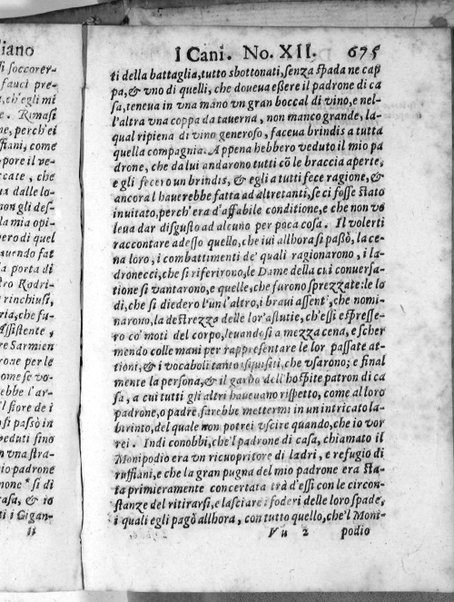 liano
si soccorer-
fauci pre-
t, ch'egli mi
. Rimasi
ne, perch'ei
ffiani, come
pore il ve-
ccate, che
ua dalle lo-
non gli des-
la mia opi-
pero di quel
hauendo fat
la porta di
stro Rodri-
rinchiusi,
ria, che fu-
Assistente,
re Sarmien
rone per le
come se vo-
rebbe l'ar-
il fiore de i
si passò in
veduti sino
n vna stra-
io padrone
none * si di
rasa, & io
ti i Gigan-
ii
I Cani. No. XII. 675
ti della battaglia, tutto sbottonati, senza spada ne cap
pa, & vno di quelli, che doueua essere il padrone di ca
sa, teneua in vna mano vn gran boccal di vino, e nel-
l'altra vna coppa da tauerna, non manco grande, la-
qual ripiena di vino generoso, faceua brindis a tutta
quella compagnia. Appena hebbero veduto il mio pa
drone, che da lui andarono tutti cõ le braccia aperte,
e gli fecero un brindis, & egli a tutti fece ragione, &
ancora l hauerebbe fatta ad altretanti, se ci fosse stato
inuitato, perch'era d'affabile conditione, e che non vo
leua dar disgusto ad alcuno per poca cosa. Il volerti
raccontare adesso quello, che iui allhora si passò, la ce
na loro, i combattimenti de' quali ragionarono, i la-
dronecci, che si riferirono, le Dame della cui conuersa-
tione si vantarono, e quelle, che furono sprezzate: le lo
di, che si diedero l'un l'altro, i braui assenti, che nomi-
narono, la destrezza delle lor'astutie, ch'essi espresse-
ro co' moti del corpo, leuandosi a mezza cena, e scher
mendo colle mani per rappresentare le lor passate at-
tioni, & i vocaboli tanto squisiti, che vsarono; e final
mente la persona, & il garbo dell'hospite patron di ca
sa, a cui tutti gli altri haueuano rispetto, come al loro
padrone, o padre sarebbe mettermi in un intricato la-
birinto, del quale non potrei vscire quando, che io vor
rei. Indi conobbi, che'l padrone di casa, chiamato il
Monipodio era vn ricuopritore di ladri, e refugio di
ruffiani, e che la gran pugna del mio padrone era sta-
ta primieramente concertata trà d'essi con le circon-
stanze del ritirarsi, e lasciare i foderi delle loro spade,
i quali egli pagò allhora, con tutto quello, che'l Moni-
Vu 2 podio